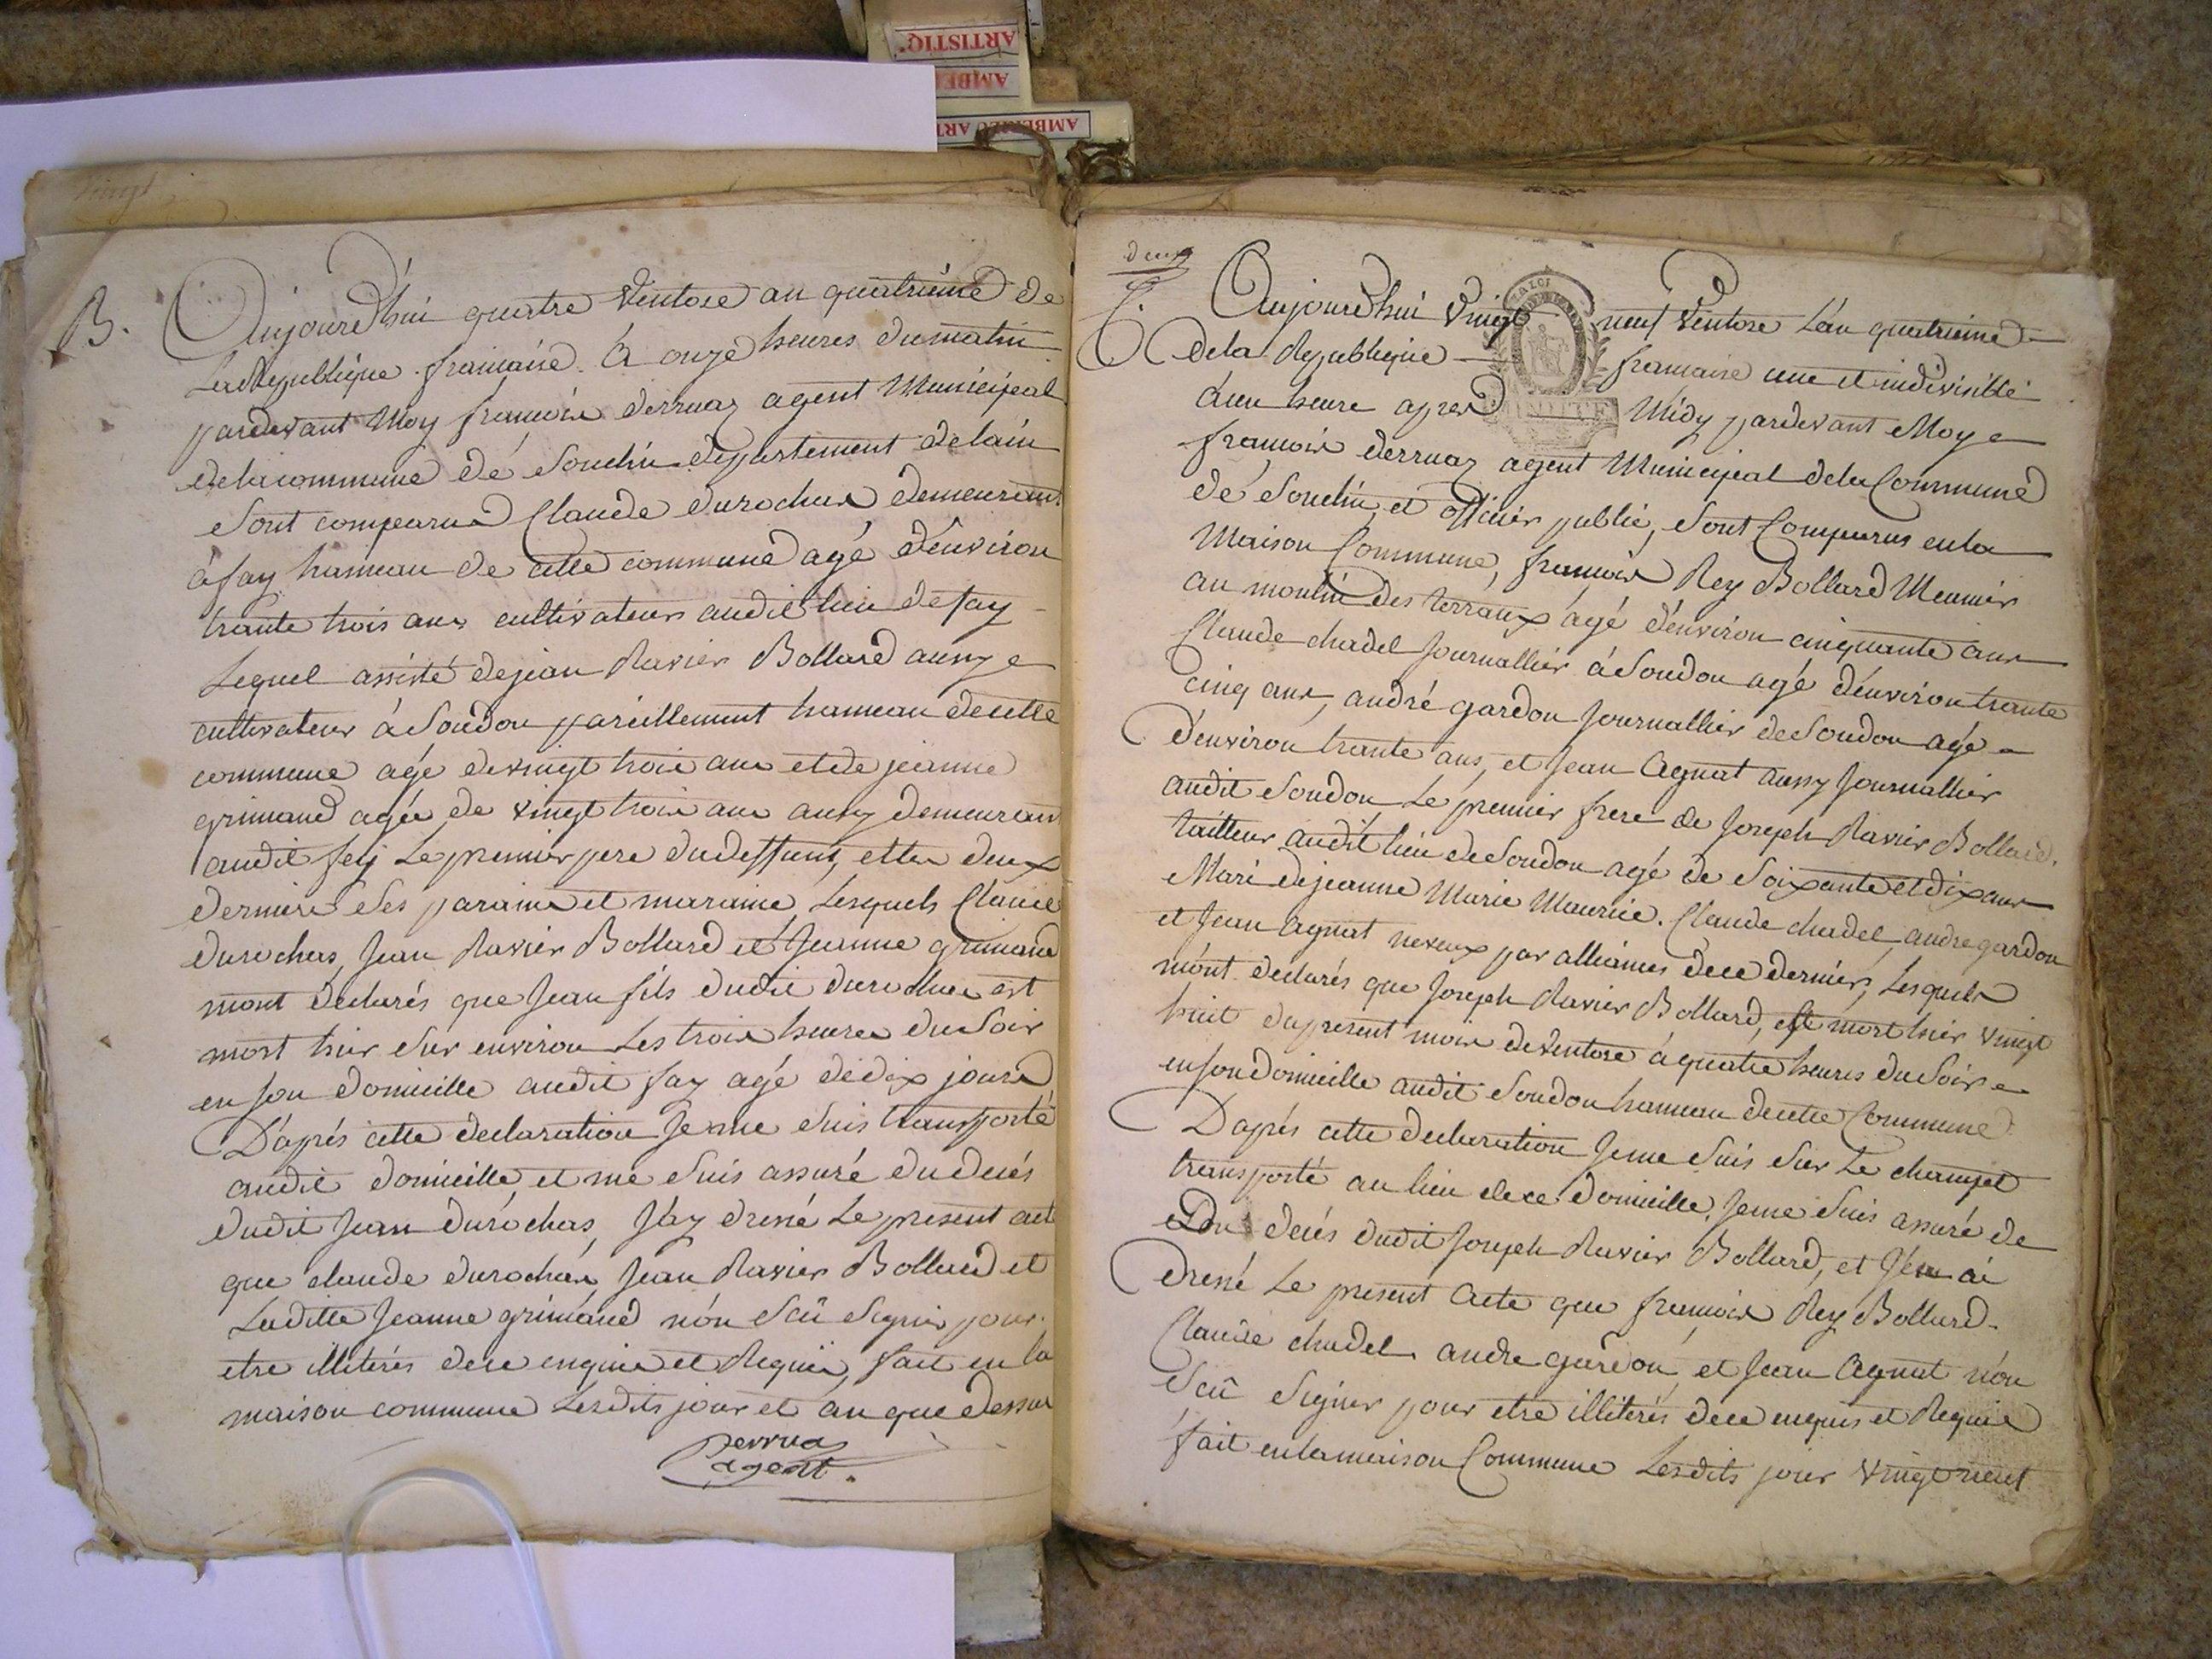 ARTISTIQ.
AMBE
AMBERIEU ART
vingt
B.
Aujourd'hui quatre Ventose an quatrieme de
La Republique francaise. à onze heures du matin
pardevant Moy francois derruaz agent Municipal
de la commune de Souclin departement de lain
Sont comparus Claude durochas demeurant
à fay hameau de cette commune agé d'environ
trante trois ans cultivateur audit lieu de fay
Lequel assisté de jean Ravier Bollard aussy
cultivateur à Soudon pareillement hameau de cette
commune agé de vingt trois ans et de jeanne
grimand agée de vingt trois ans aussy demeurant
audit fey Le premier pere du deffunt, et les deux
derniers Ses parain et maraine, Lesquels Claude
durochas, Jean Ravier Bollard et Jeanne grimand
mont declarés que Jean fils dudit durochas est
mort hier Sur environ Les trois heures du Soir
en Son domicille audit fay agé de dix jours
D'aprés cette declaration Je me Suis transporté
audit domicille et me Suis assuré du decés
dudit Jean durochas, J'ay dressé Le present acte
que claude durochas, Jean Ravier Bollard et
Laditte Jeanne grimand n'on Scû Signer pour
etre illiterés de ce enquis et Requis, fait en la
maison commune Lesdits jour et an que dessus
derruaz
agent.
deux
Aujourd'hui Vingt neuf Ventose L'an quatrieme
LA LOI
de la Republique francaise une et indivisible
à une heure apres Midy pardevant Moy
francois derruaz agent Municipal de la Commune
de Souclin, et officier public, Sont Comparus en la
Maison Commune, francois Rey Bollard Meunier
au moulin des terraux agé d'environ cinquante ans
Claude chadel Journallier à Soudon agé d'environ trante
Cinq ans, andré gardon Journallier de Soudon agé
d'environ trante ans, et Jean Agnat aussy Journallier
audit Soudon Le premier frere de Joseph Ravier Bollard.
tailleur audit lieu de Soudon agé de Soixante et dix ans
Mari de jeanne Marie Maurice. Claude chadel, andre gardon
et Jean Agnat neveux par alliances de ce dernier, Lesquels
m'ont declarés que Joseph Ravier Bollard, est mort hier vingt
huit du present mois de Ventose à quatre heures du Soir
en Son domicille audit Soudon hameau de cette Commune
D'aprés cette declaration Je me Suis Sur Le champ
transporté au lieu de ce domicille, Je me Suis assuré de
du decés dudit Joseph Ravier Bollard, et J'en ai
dressé Le present Acte que francois Rey Bollard
Claude chadel andre gardon, et Jean Agnat n'on
Scû Signer pour etre illiterés de ce enquis et Requis
fait en la maison Commune Lesdits jour vingt neuf